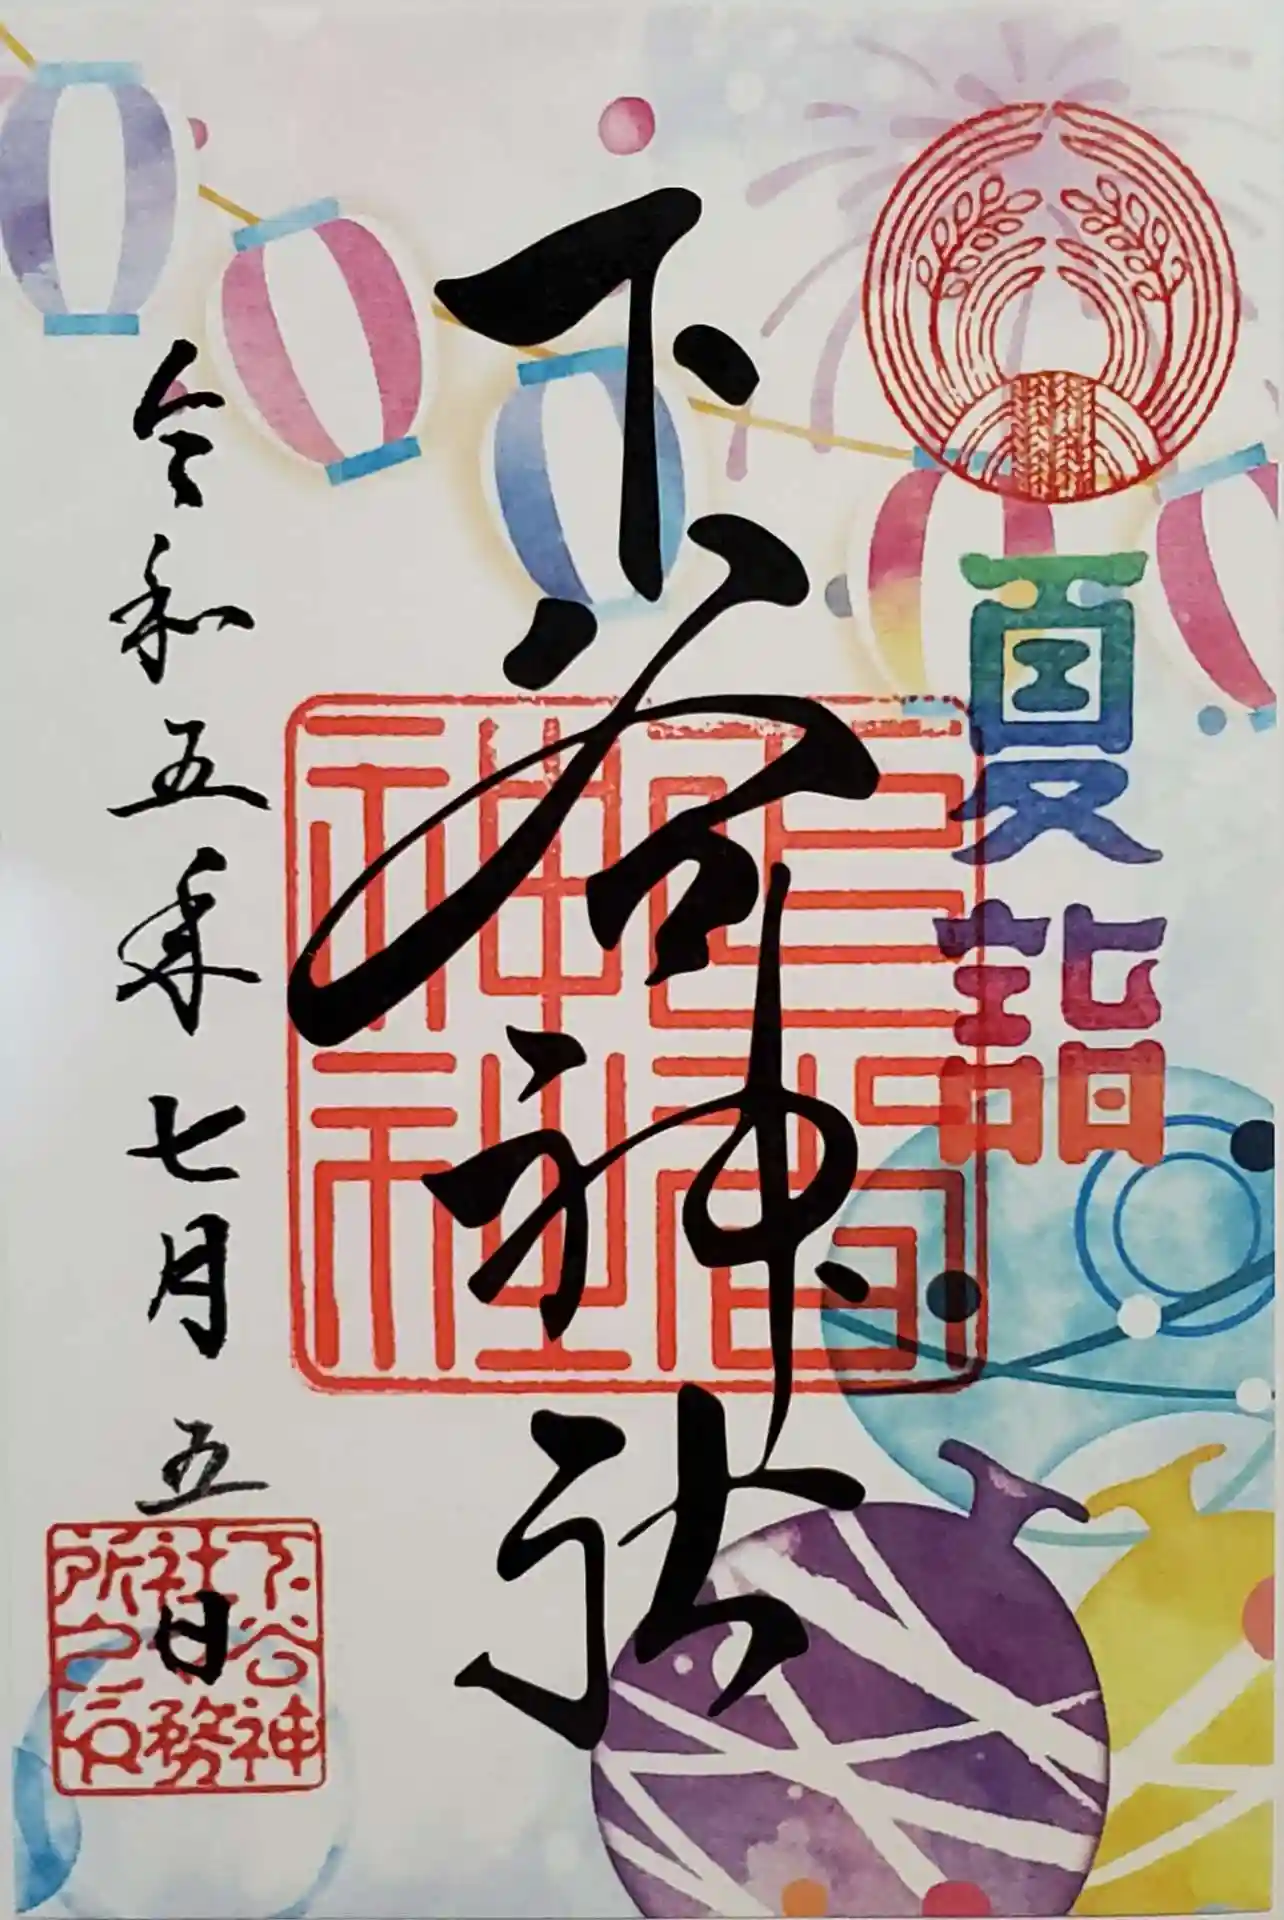 夏詣
下谷神社
令和五年七月五日
下谷神
社務
所之印